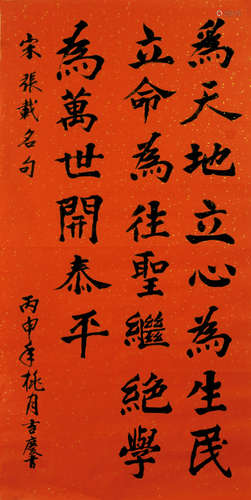 爲天地立心為生民
立命為往聖繼絕學
為萬世開泰平
宋張載名句
丙申年桃月